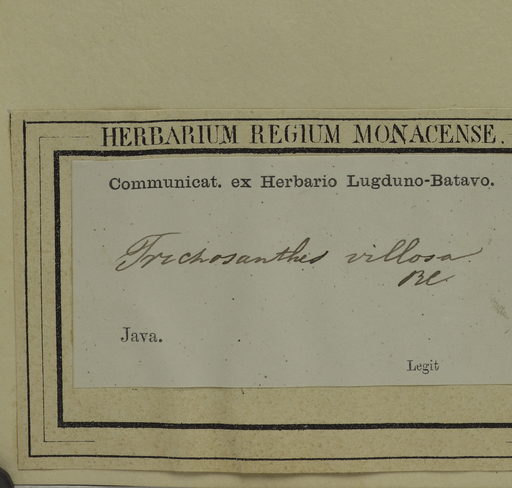 HERBARIUM REGIUM MONACENSE.
Communicat. ex Herbario Lugduno-Batavo.
Trichosanthes villosa
Bl.
Java.
Legit